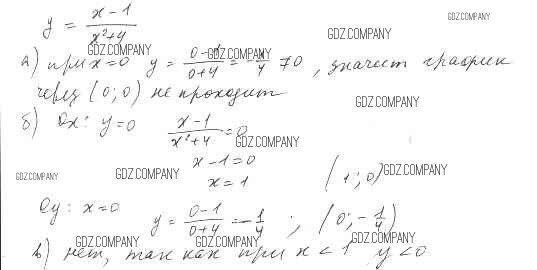 y = (x - 1)/(x² + 4)
GDZ.COMPANY
GDZ.COMPANY GDZ.COMPANY
а) при x = 0 y = (0 - 1)/(0 + 4) = -1/4 ≠ 0, значит график
через (0; 0) не проходит
GDZ.COMPANY
б) Ox: y = 0 (x - 1)/(x² + 4) = 0
GDZ.COMPANY
x - 1 = 0
GDZ.COMPANY GDZ.COMPANY GDZ.COMPANY
x = 1 (1; 0)
Oy: x = 0 y = (0 - 1)/(0 + 4) = -1/4; (0; -1/4)
GDZ.COMPANY GDZ.COMPANY GDZ.COMPANY
в) нет, так как при x < 1 y < 0